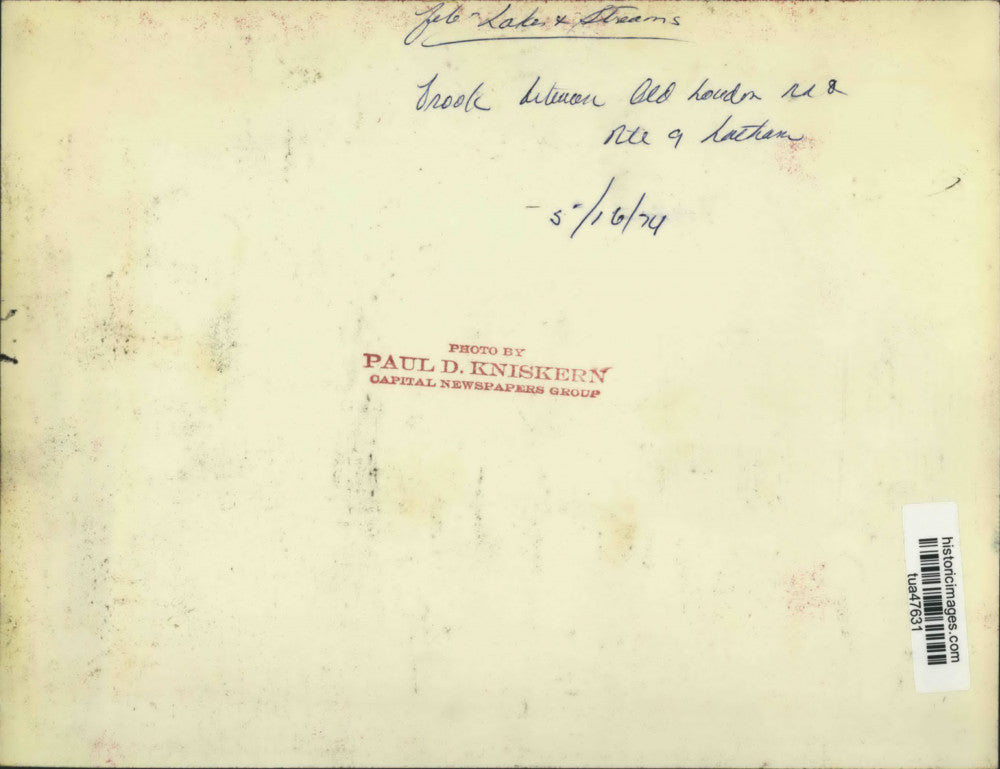 Lakes & Streams
brook between Old Loudon rd &
Rte 9 Latham
- 5/16/74
PHOTO BY
PAUL D. KNISKERN
CAPITAL NEWSPAPERS GROUP
historicimages.com
tua47631